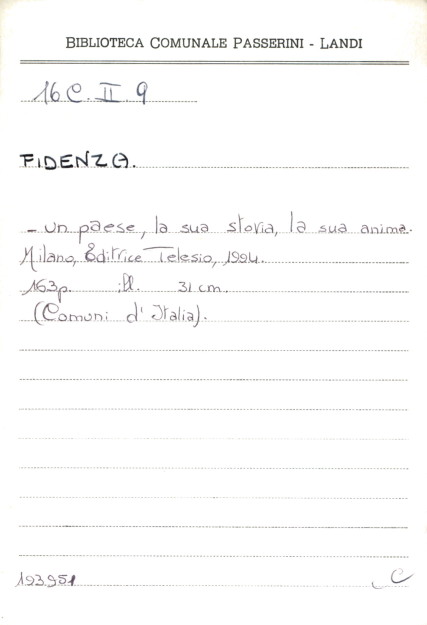 BIBLIOTECA COMUNALE PASSERINI - LANDI
16 C. II. 9
FIDENZA.
- Un paese, la sua storia, la sua anima.
Milano, Editrice Telesio, 1994.
163p. ill. 31 cm.
(Comuni d'Italia).
193951 C